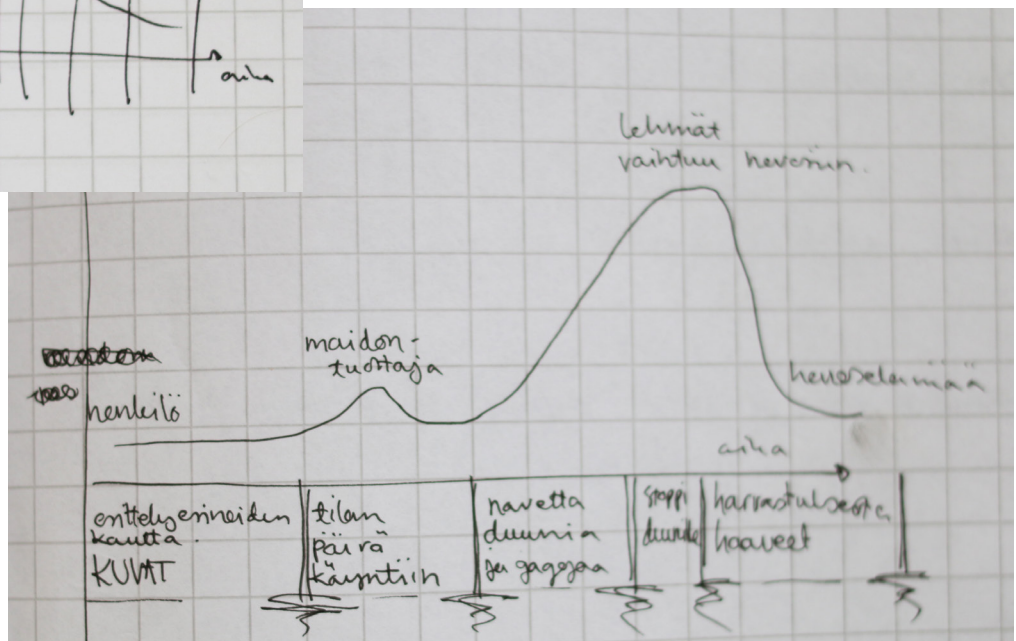 aika
lehmät
vaihtuu hevosiin.
maidon-
tuottaja
henkilö
hevoselämää
aika
esittelyesineiden
kautta.
KUVAT
tilan
päivä
käyntiin
navetta
duunia
ja gagejaa
stoppi
duunille
harrastuksesta
haaveet